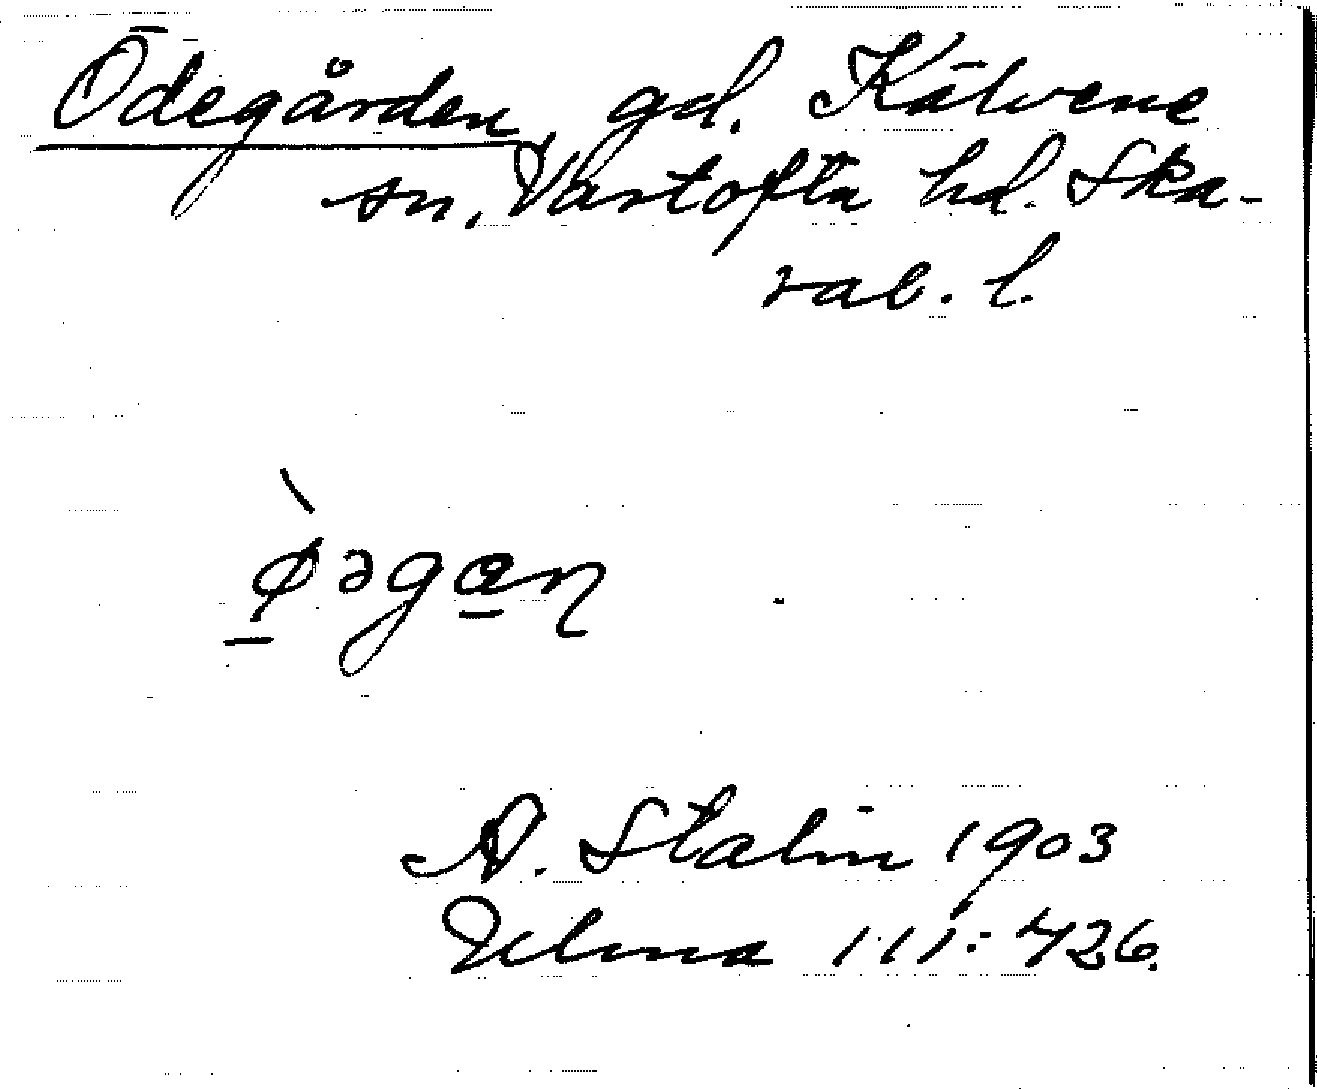 Ödegården, gd. Kälvene
sn, Vartofta hd. Ska-
rab. l.
A. Stalin 1903
Ulma 111: 426.